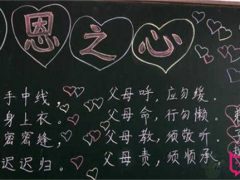 恩之心
手中线，
身上衣。
密密缝，
迟迟归。
父母呼，应勿缓。
父母命，行勿懒。
父母教，须敬听
父母责，须顺承